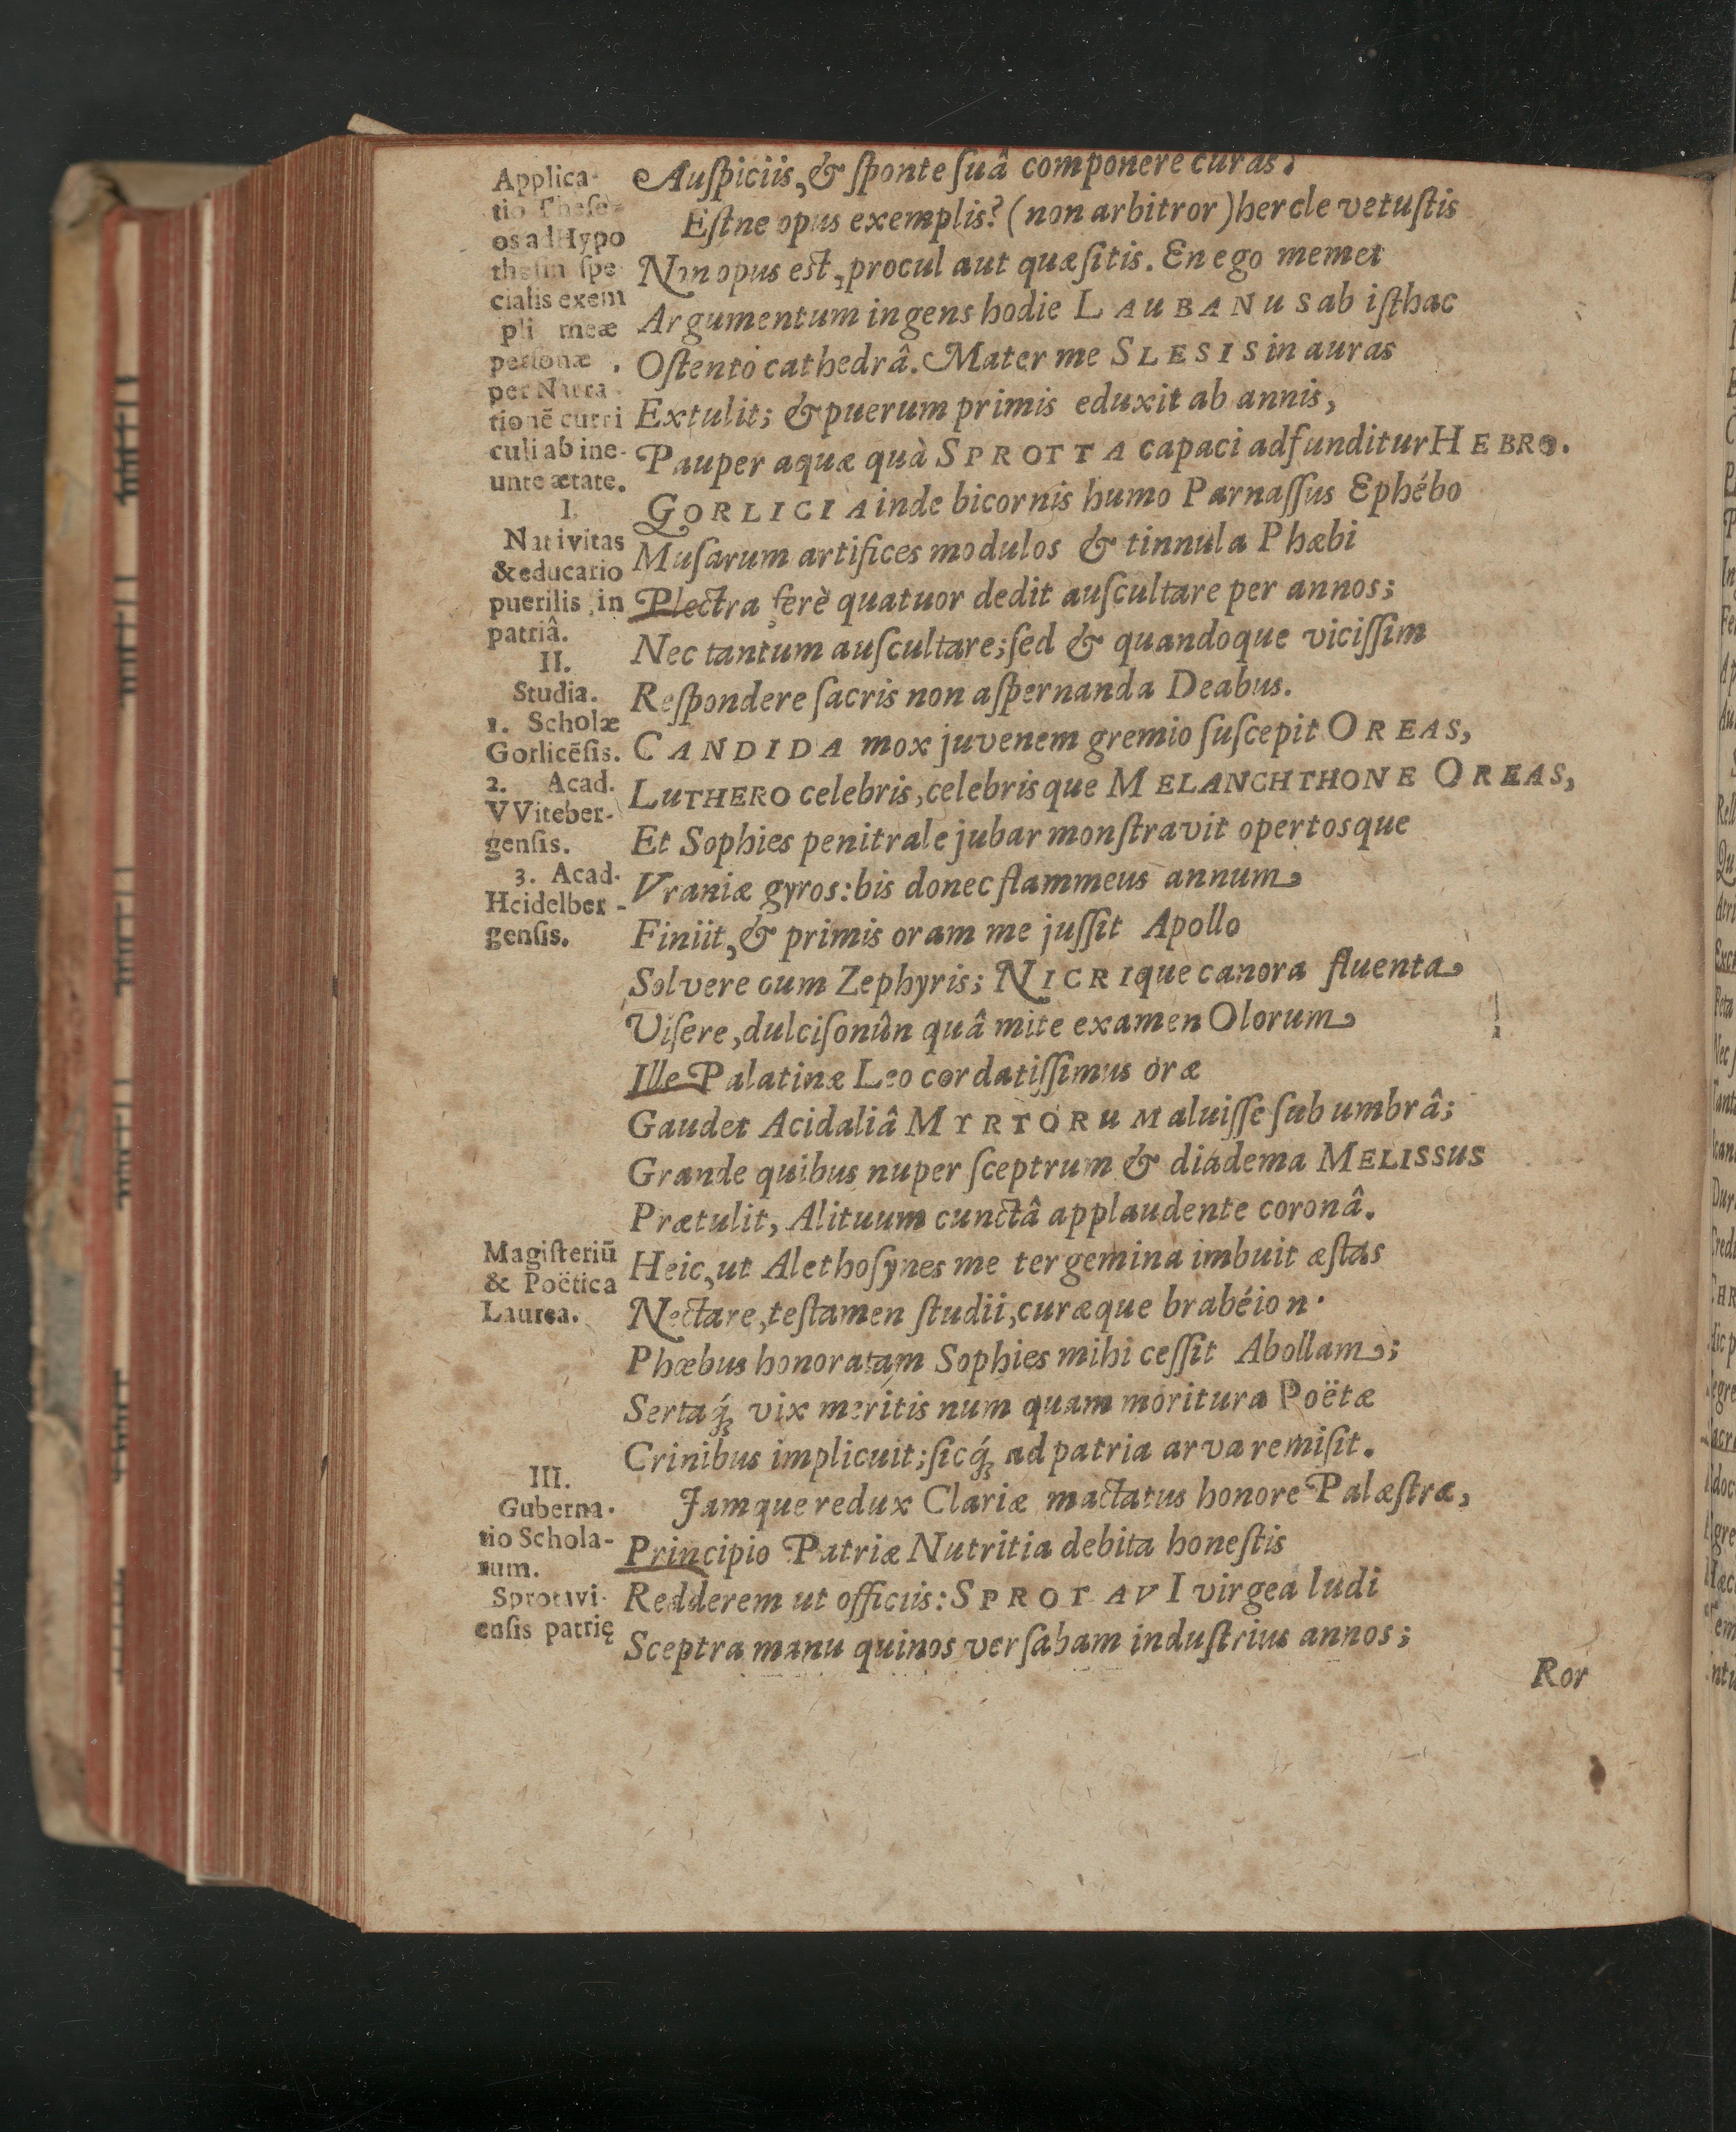 Auſpiciis, & ſponte ſuâ componere curas?
Eſtne opus exemplis? (non arbitror) hercle vetuſtis
Non opus est, procul aut quæſitis. En ego memet
Argumentum ingens hodie LAUBANUS ab iſthac
Oſtento cathedrâ. Mater me SLESIS in auras
Extulit; & puerum primis eduxit ab annis,
Pauper aquæ quà SPROTTA capaci adfunditur HEBRO.
GORLICIA inde bicornis humo Parnaſſus Ephébo
Muſarum artifices modulos & tinnula Phæbi
Plectra ferè quatuor dedit auſcultare per annos;
Nec tantum auſcultare; ſed & quandoque viciſſim
Reſpondere ſacris non aſpernanda Deabus.
CANDIDA mox juvenem gremio ſuſcepit OREAS,
LUTHERO celebris, celebrisque MELANCHTHONE OREAS,
Et Sophies penitrale jubar monſtravit opertosque
Vraniæ gyros: bis donec flammeus annum
Finiit, & primis oram me juſſit Apollo
Solvere cum Zephyris; NICRIque canora fluenta
Viſere, dulciſonûn quâ mite examen Olorum
Ille Palatinæ Leo cordatiſſimus oræ
Gaudet Acidaliâ MYRTORUM aluiſſe ſub umbrâ;
Grande quibus nuper ſceptrum & diadema MELISSUS
Prætulit, Alituum cunctâ applaudente coronâ.
Heic, ut Alethoſynes me tergemina imbuit æſtas
Nectare, teſtamen ſtudii, curæque brabéion.
Phœbus honoratam Sophies mihi ceſſit Abollam;
Sertaq́; vix meritis num quam moritura Poëtæ
Crinibus implicuit; ſicq́; ad patria arva remiſit.
Jamque redux Clariæ mactatus honore Palæſtræ,
Principio Patriæ Nutritia debita honeſtis
Redderem ut officiis: SPROTAVI virgea ludi
Sceptra manu quinos verſabam induſtrius annos;
Ror
Applica-
tio Theſe-
os ad Hypo
theſin ſpe
cialis exem
pli meæ
perſonæ,
per Narra-
tionē curri
culi ab ine-
unte ætate.
I.
Nativitas
& educatio
puerilis in
patriâ.
II.
Studia.
1. Scholæ
Gorlicēſis.
2. Acad.
VViteber-
genſis.
3. Acad.
Heidelber-
genſis.
Magiſteriū
& Poëtica
Laurea.
III.
Guberna-
tio Schola-
rum.
Sprotavi-
enſis patrię